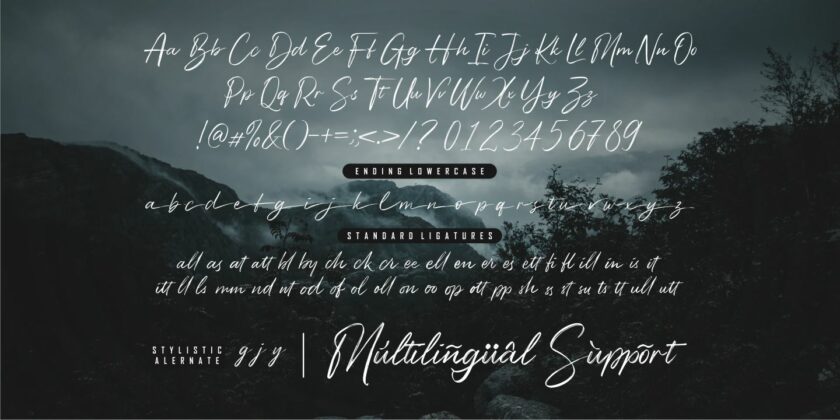 Aa Bb Cc Dd Ee Ff Gg Hh Ii Jj Kk Ll Mm Nn Oo
Pp Qq Rr Ss Tt Uu Vv Ww Xx Yy Zz
!@#%&()-+=;:<.>/? 0123456789
ENDING LOWERCASE
a b c d e f g i j k l m n o p q r s t u v w x y z
STANDARD LIGATURES
all as at att bl by ch ck cr ee ell en er es ett fi fl ill in is it
itt ll ls mm nd nt od of ol oll on oo op ott pp sh ss st su ts tt ull utt
STYLISTIC
ALERNATE
g j y
Múltiliñgüâl Sùppõrt